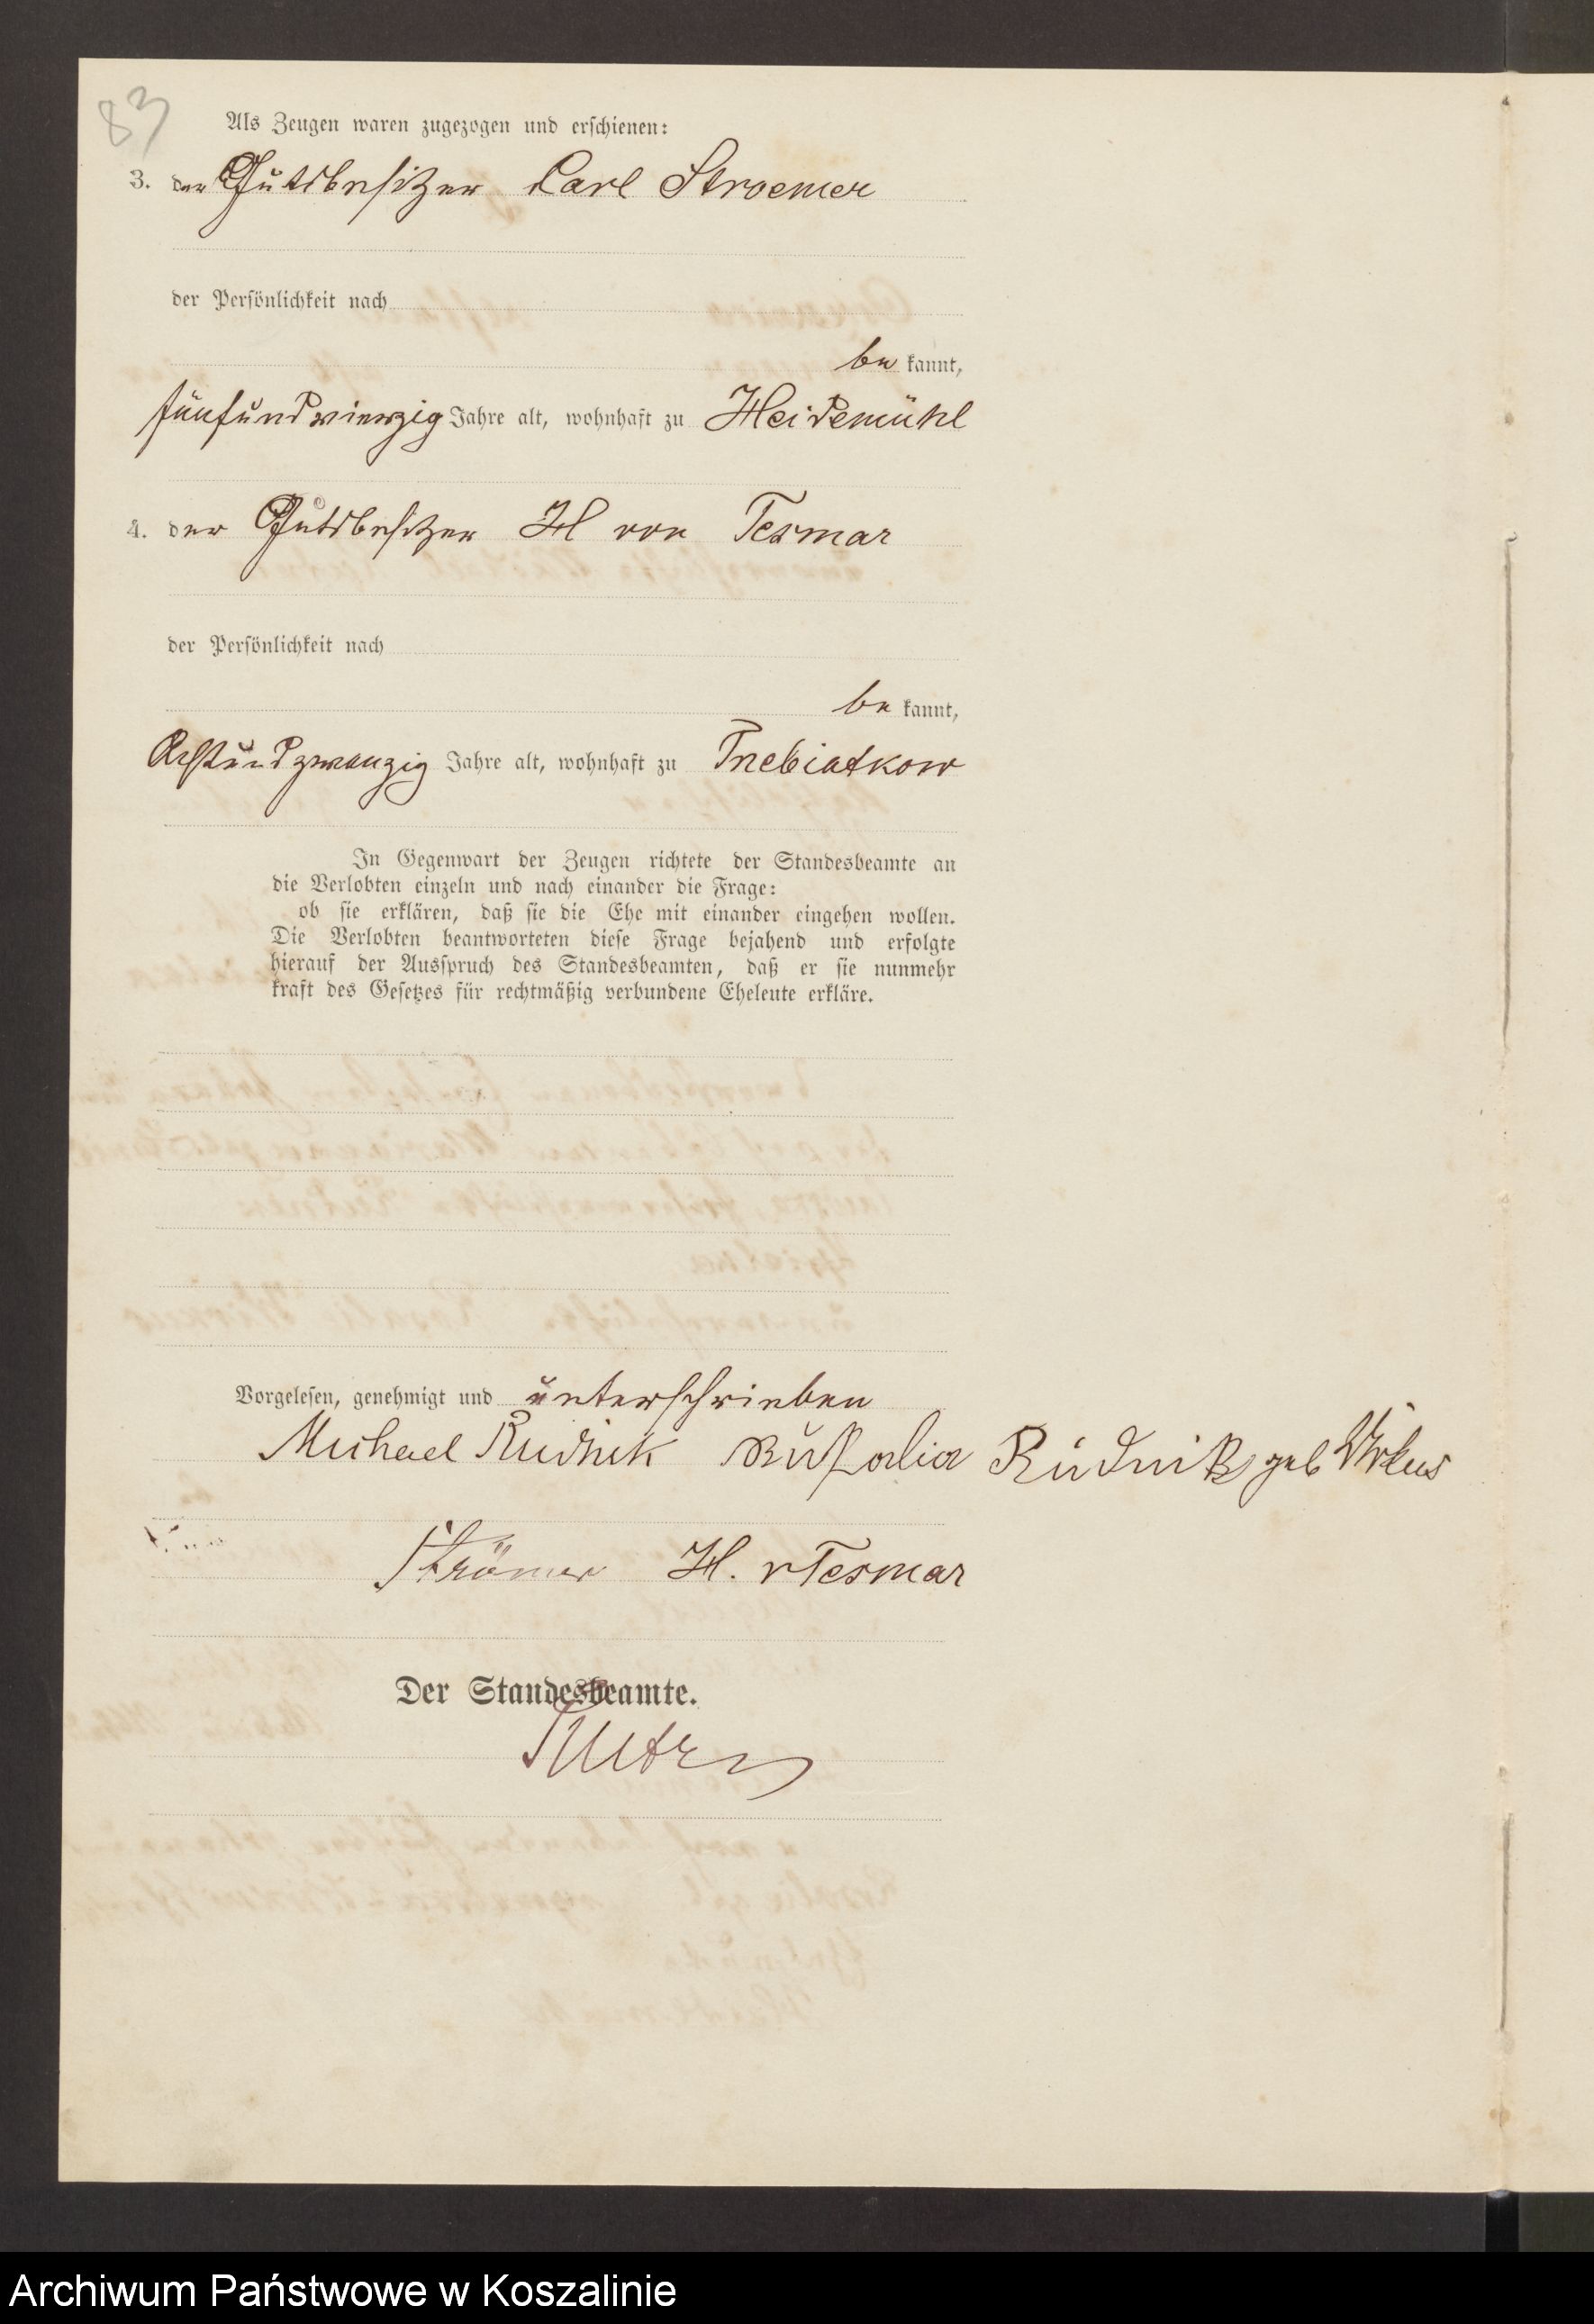 83
Als Zeugen waren zugezogen und erschienen:
3. der Gutsbesitzer Carl Stroemer
der Persönlichkeit nach
be kannt,
fünfundvierzig Jahre alt, wohnhaft zu Heidemühl
4. der Gutsbesitzer H von Tesmar
der Persönlichkeit nach
be kannt,
Achtundzwanzig Jahre alt, wohnhaft zu Trebiatkow
In Gegenwart der Zeugen richtete der Standesbeamte an
die Verlobten einzeln und nach einander die Frage:
ob sie erklären, daß sie die Ehe mit einander eingehen wollen.
Die Verlobten beantworteten diese Frage bejahend und erfolgte
hierauf der Ausspruch des Standesbeamten, daß er sie nunmehr
kraft des Gesetzes für rechtmäßig verbundene Eheleute erkläre.
Vorgelesen, genehmigt und unterschrieben
Michael Rudnik Rusalia Rudnik geb Wirkus
Strömer H. v Tesmar
Der Standesbeamte.
Archiwum Państwowe w Koszalinie